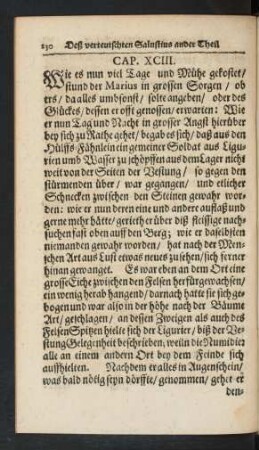 230 Deß verteutschten Salustius ander Theil
CAP. XCIII.
Wie es nun viel Tage und Mühe gekostet/
stund der Marius in grossen Sorgen/ ob
ers/ da alles umbsonst/ solte angeben/ oder des
Glückes/ dessen er offt genossen/ erwarten: Wie
er nun Tag und Nacht in grosser Angst hierüber
bey sich zu Rathe gehet/ begab es sich/ daß aus den
Hülffs-Fähnlein ein gemeiner Soldat aus Ligu-
rien umb Wasser zu schöpffen aus dem Lager nicht
weit von der Seiten der Vestung/ so gegen den
stürmenden über/ war gegangen/ und etlicher
Schnecken zwischen den Steinen gewahr wor-
den: wie er nun deren eine und andere auflaß und
gerne mehr hätte/ geriethe er über diß fleissige nach-
suchen fast oben auff den Berg; wie er daselbsten
niemanden gewahr worden/ hat nach der Men-
schen Art aus Lust etwas neues zu sehen/ sich ferner
hinan gewanget. Es war eben an dem Ort eine
grosse Eiche zwischen den Felsen herfür gewachsen/
ein wenig herab hangend/ darnach hatte sie sich ge-
bogen und war also in der höhe nach der Bäume
Art/ geschlagen/ an dessen Zweigen als auch des
Felsen Spitzen hielte sich der Ligurier/ biß der Ve-
stung Gelegenheit beschrieben/ weiln die Numidier
alle an einem andern Ort bey dem Feinde sich
auffhielten. Nachdem er alles in Augenschein/
was bald nötig seyn dörffte/ genommen/ gehet er
den-